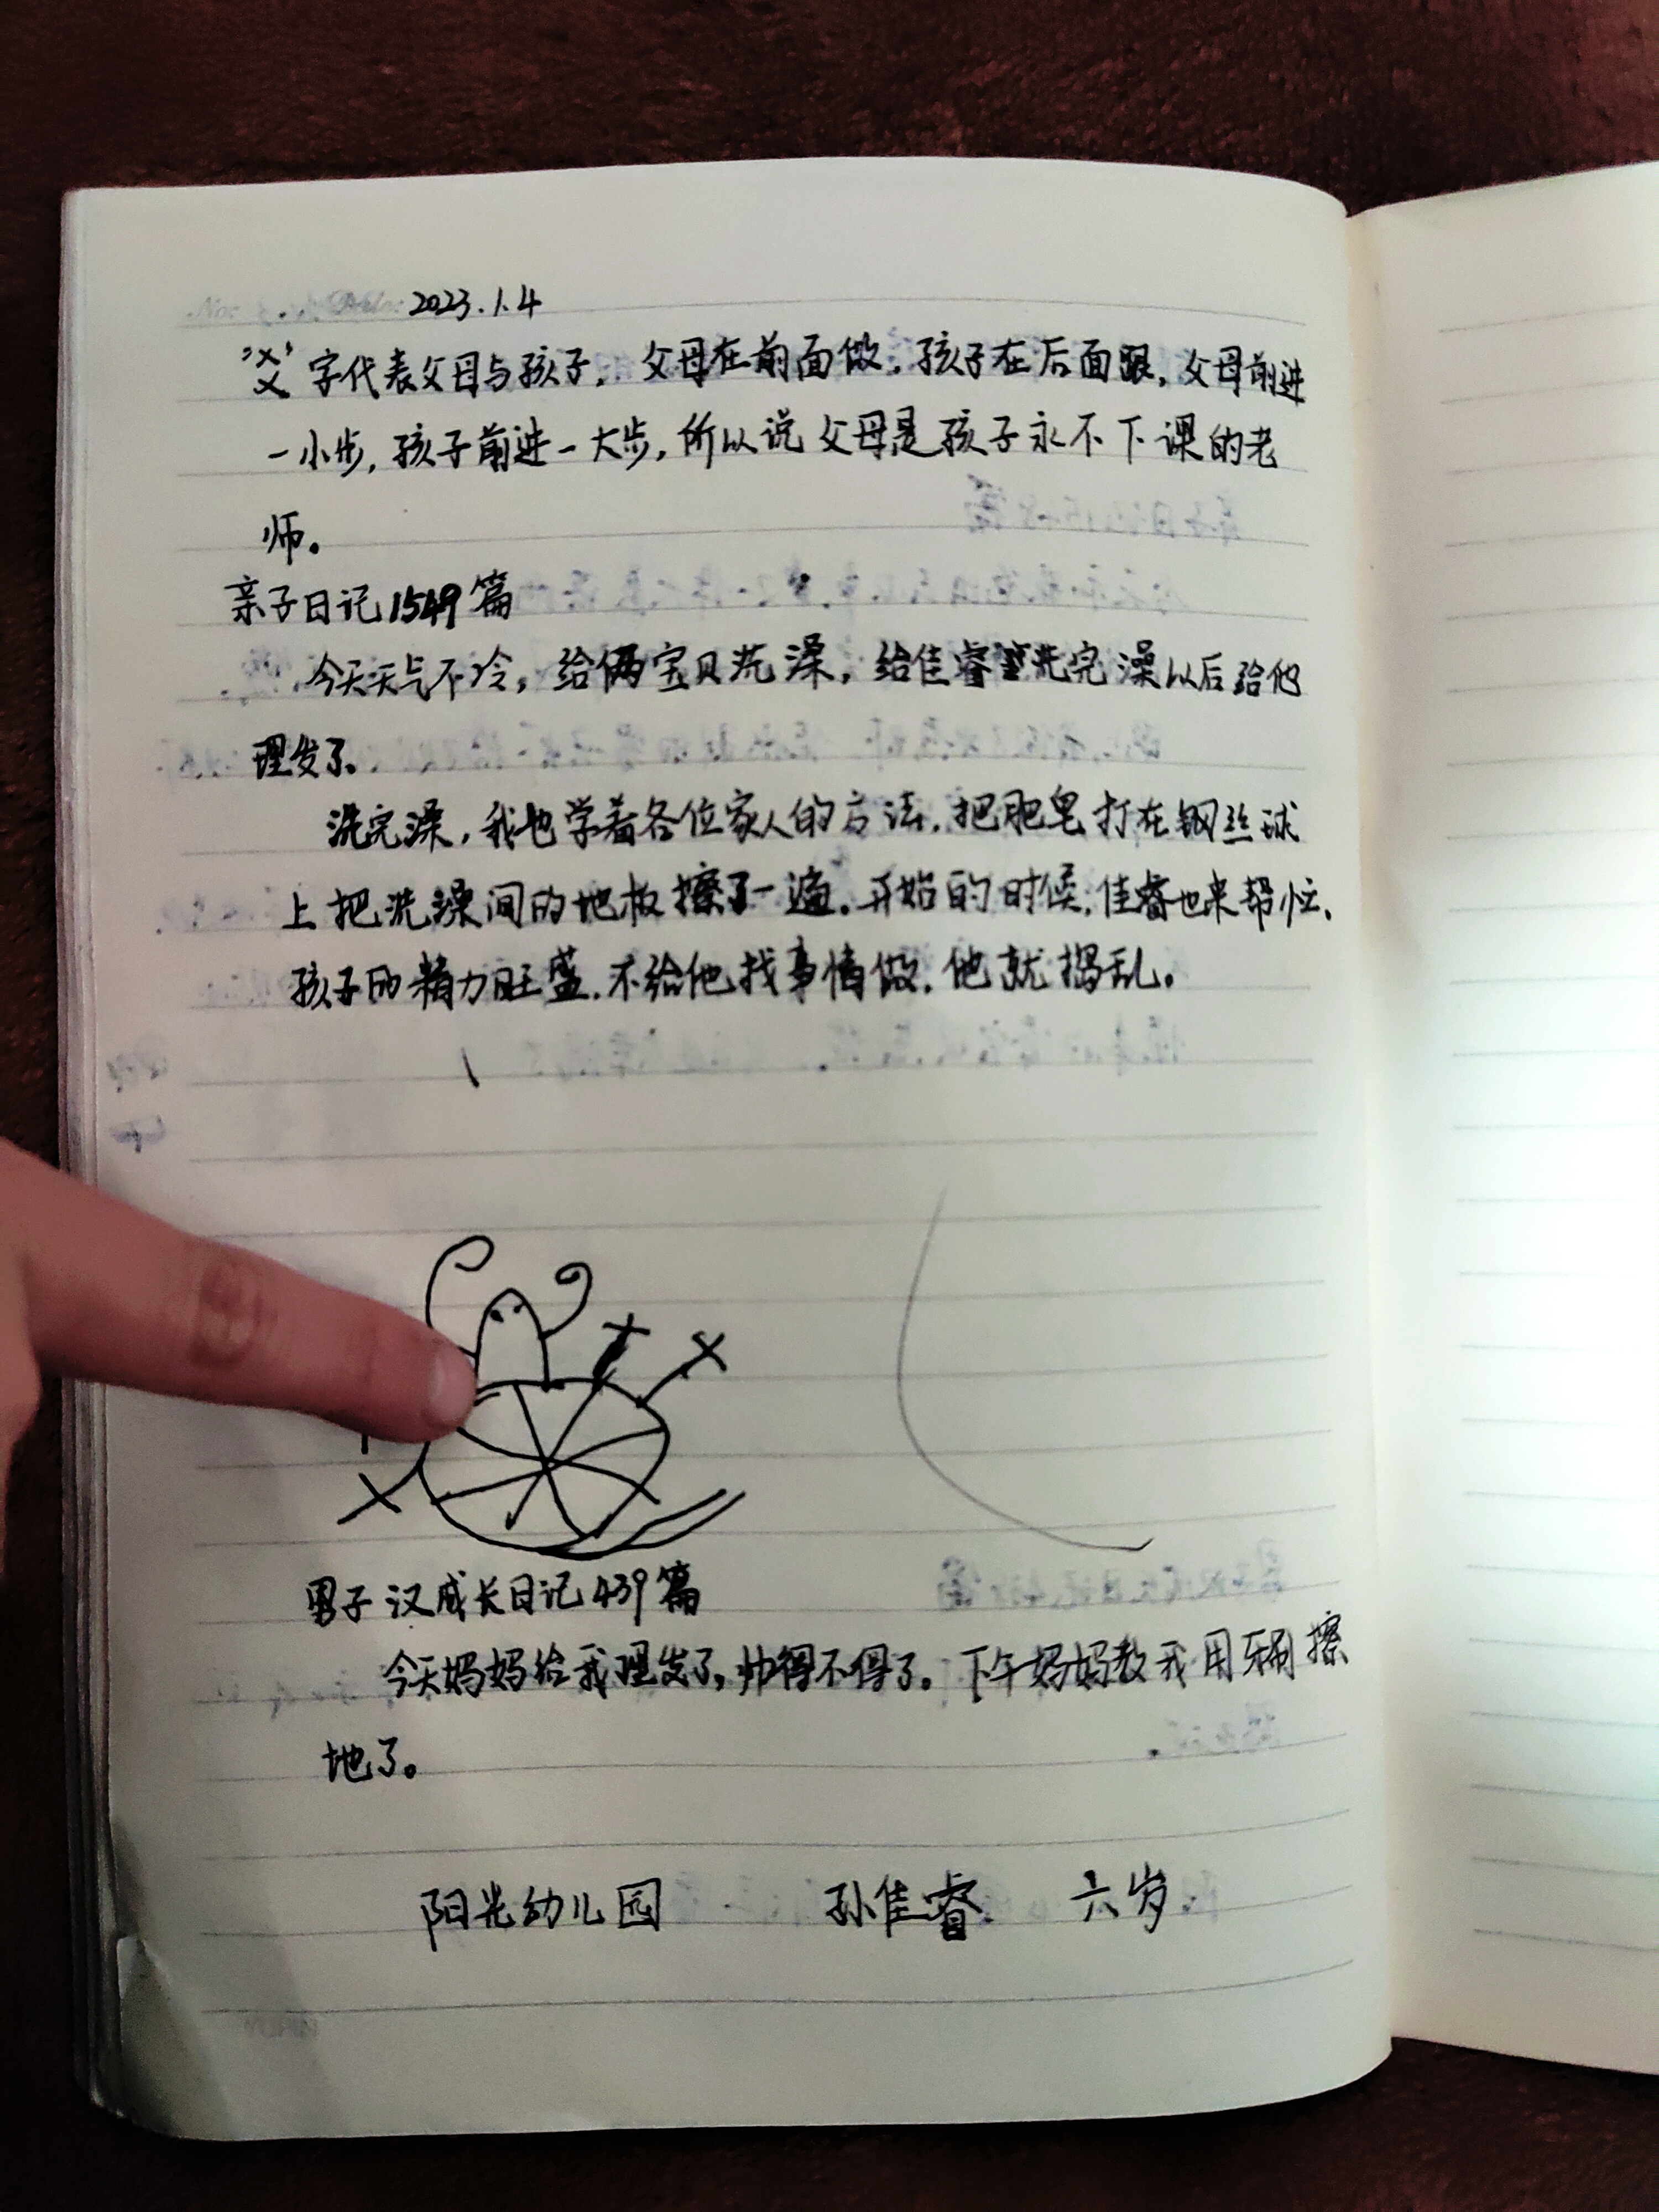 2023.1.4
字代表父母与孩子,父母在前面做,孩子在后面跟,父母前进
一小步,孩子前进一大步,所以说父母是孩子永不下课的老
师。
亲子日记1549篇
今天天气不冷,给俩宝贝洗澡,给佳睿洗完澡以后给他
理发了。
洗完澡,我也学着各位家人的方法,把肥皂打在钢丝球
上把洗澡间的地板擦了一遍。开始的时候,佳睿也来帮忙、
孩子的精力旺盛,不给他找事情做,他就捣乱。
男子汉成长日记439篇
今天妈妈给我理发了,帅得不得了。下午妈妈教我用牙刷擦
地了。
阳光幼儿园 孙佳睿 六岁